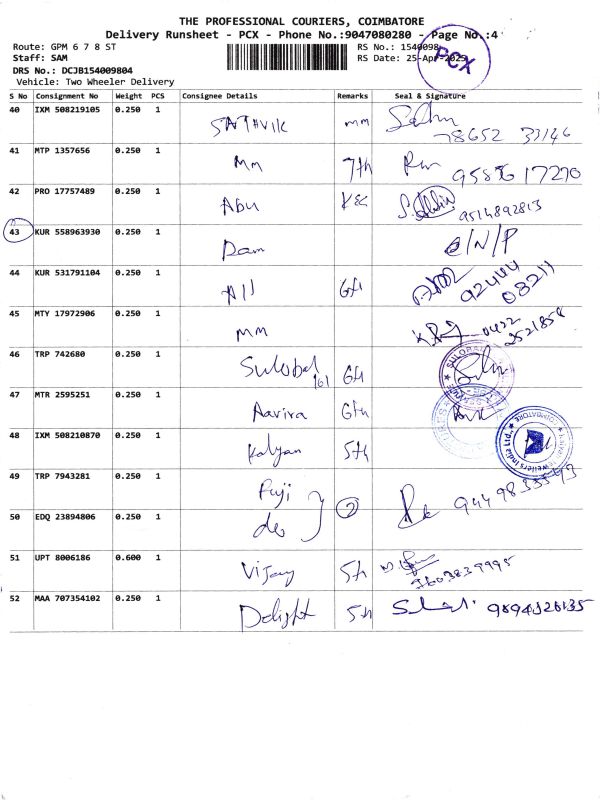 THE PROFESSIONAL COURIERS, COIMBATORE
Delivery Runsheet - PCX - Phone No.:9047080280 - Page No.:4
Route: GPM 6 7 8 ST
RS No.: 1540098
Staff: SAM
RS Date: 25-Apr-2025
PCX
DRS No.: DCJB154009804
Vehicle: Two Wheeler Delivery
S No Consignment No Weight PCS Consignee Details Remarks Seal & Signature
40 IXM 508219105 0.250 1 SATHVIK mm
41 MTP 1357656 0.250 1 Mm 7th
42 PRO 17757489 0.250 1 Abu 9514892813
43 KUR 558963930 0.250 1 Dam
44 KUR 531791104 0.250 1 All 6th 92444
08211
45 MTY 17972906 0.250 1 mm 0422
2521858
46 TRP 742680 0.250 1 Sulobal 6th
47 MTR 2595251 0.250 1 Aavira 6th
48 IXM 508210870 0.250 1 Kalyan 5th
49 TRP 7943281 0.250 1 Fuji 2
50 EDQ 23894806 0.250 1 do
51 UPT 8006186 0.600 1 Vijay 5th
9603839995
52 MAA 707354102 0.250 1 Delight 5th 9894326135